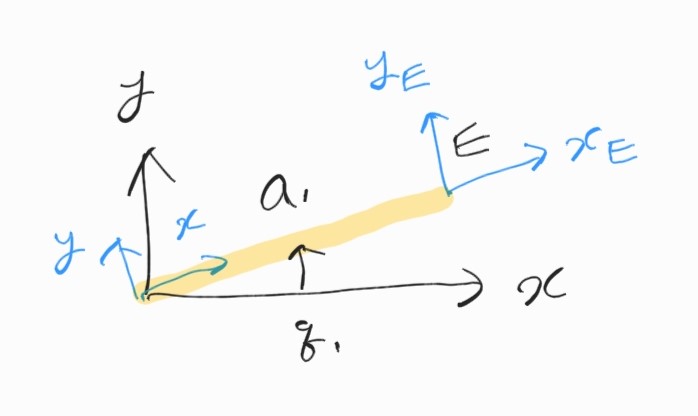 y
y_E
E
x_E
a₁
x
y
x
q₁